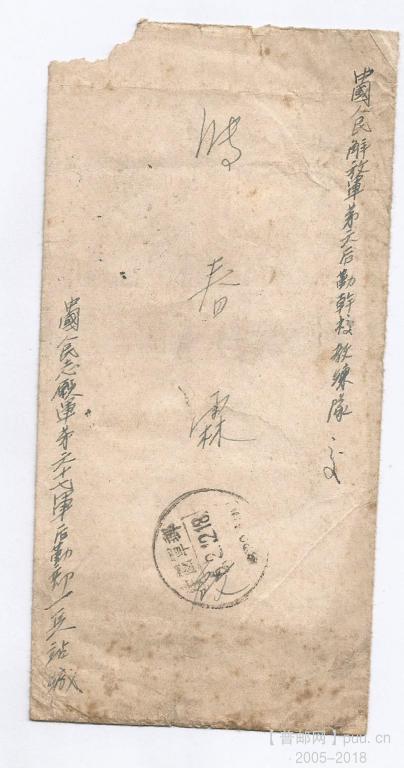 中國人民解放軍第六后勤幹校教練隊 交
時春霖
中國人民志願軍第六十七軍后勤部一兵站緘
軍郵
2.12.18
【普邮网】puu.cn
2005-2018